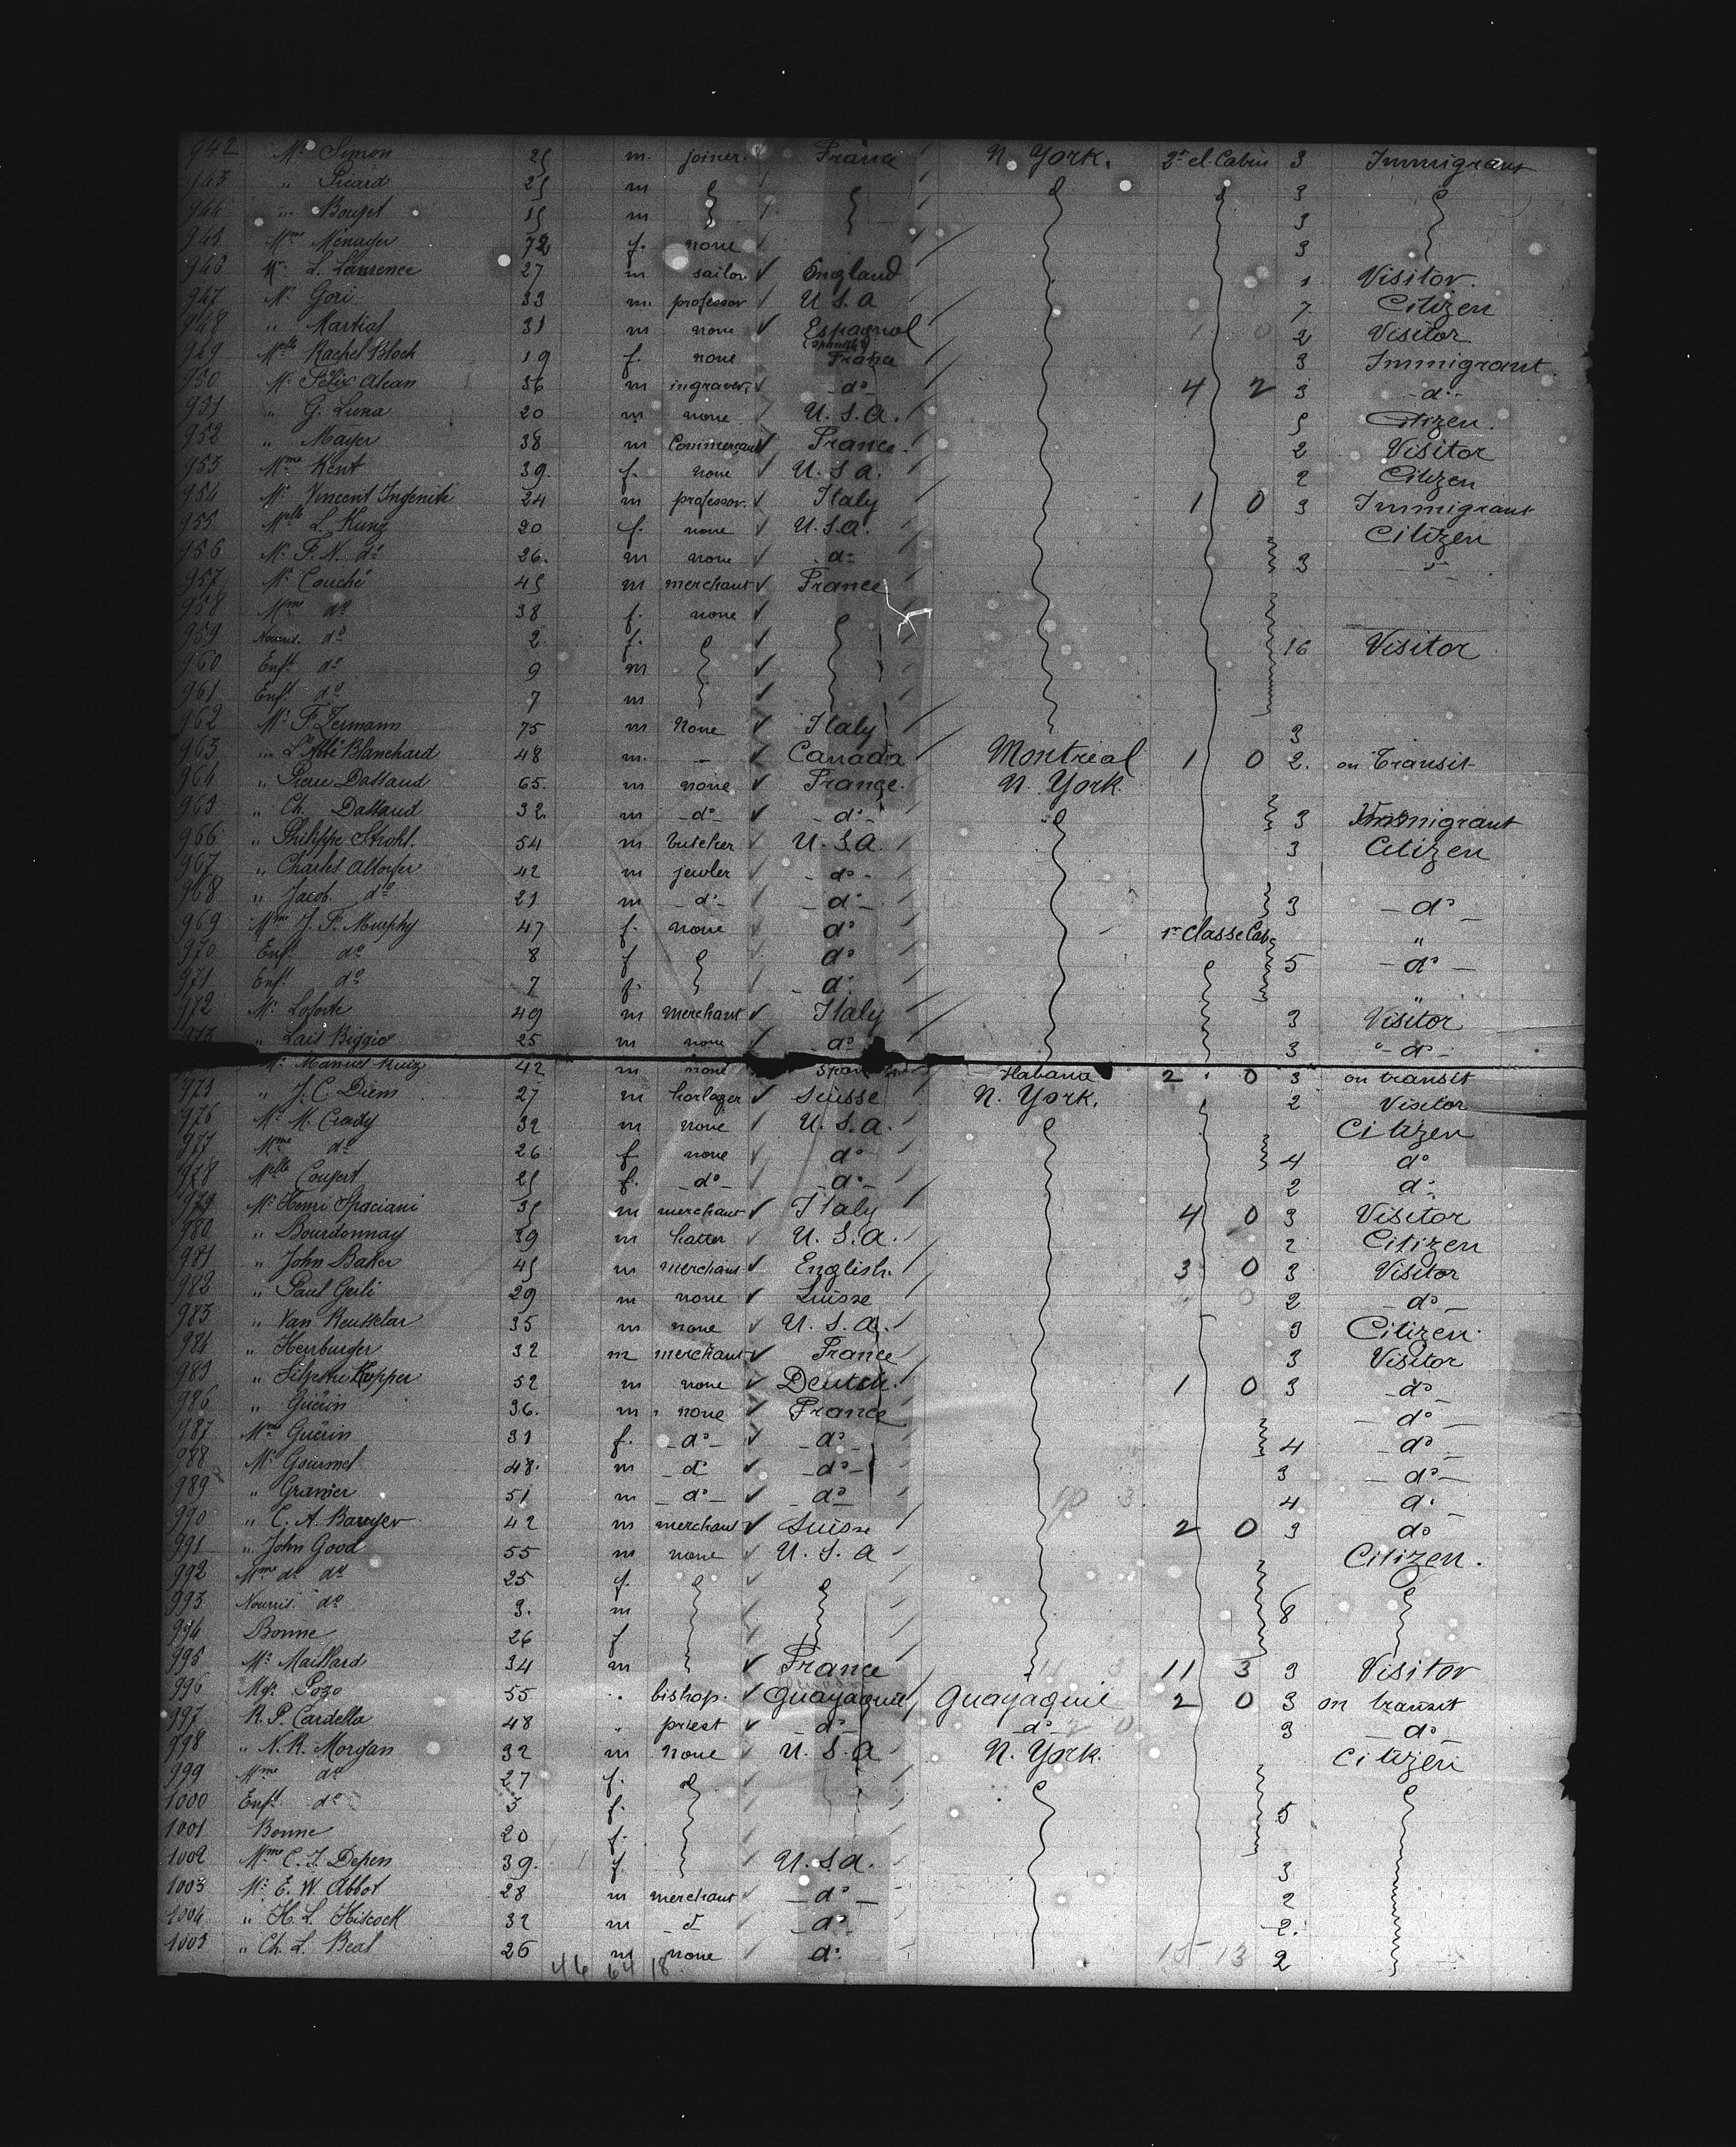 942 Mr Simon 25 m. joiner France N. York. 2e cl. Cabin 3 Immigrant
943 " Picard 25 m 3
944 " Bouget 15 m 3
945 Mme Ménager 72 f. none 3
946 Mr. L. Lawrence 27 m sailor England 1 Visitor.
947 Mr Gori 33 m. professor U S. a 7. Citizen
948 " Martial 31 m none Espagnol (Spanish) 2 Visitor
949 Melle Rachel Bloch 19 f. none France 3 Immigrant.
950 Mr Félix Alcan 36 m ingraver. -do- 4 2 3 -do-
951 " G. Luna 20 m none U. S. a. 5 Citizen.
952 " Mayer 38 m Commerçant France. 2 Visitor
953 Mme Kent 39. f. none U. S. a. 2 Citizen
954 Mr Vincent Ingeniti 24 m professor. Italy 1 0 3 Immigrant
955 Melle L. Kunz 20 f. none U. S. a. Citizen
956 Mr F. N. do 26. m none do 3 -"-
957 Mr Couché 45 m merchant France
958 Mme do 38 f. none
959 Nourris. do 2. f. 16 Visitor
960 Enft do 9 m
961 Enft do 7 m
962 Mr F. Zermann 75 m None Italy 3
963 " L'Abbé Blanchard 48 m. - Canada Montreal 1 0 2. on Transit
964 " Pierre Dassaud 65. m none France. N. York.
965 " Ch. Dassaud 32. m -do- -do- 3 Immigrant
966 " Philippe Strohl. 54 m butcher U. S. a. 3 Citizen
967 " Charles Altoufer 42 m jewler -do-
968 " Jacob do 21 m -do- -do- 3 -do-
969 Mme J. F. Murphy 47 f. none do 1re Classe Cab. "
970 Enft do 8 f do 5 -do-
971 Enft do 7 f. do "
972 Mr Laforte 49 m merchant Italy 3 Visitor
973 " Lais Biggio 25 m none do 3 "-do-
Mr Manuel Ruiz 42 m none Habana 2 0 3 on transit
975 " J. C. Diem 27 m horloger Suisse N. York. 2 Visitor
976 Mr M. Crady 32 m none U. S. a. Citizen
977 Mme do 26 f none do 4 do
978 Melle Coupert 25 f. -do- -do- 2 do
979 Mr Henri Spaciani 35 m merchant Italy 4 0 3 Visitor
980 " Bourdonnay 39 m hatter U. S. a. 2 Citizen
981 " John Baker 45 m merchant English. 3 0 3 Visitor
982 " Paul Geili 29 m none Suisse 2 -do-
983 " Van Reusselar 35 m none U. S. a. 3 Citizen.
984 " Herrburger 32 m merchant France 3 Visitor
985 " Hopper 52 m none Deutch. 1 0 3 -do-
986 " Guérin 36. m none France -do-
987 Mme Guérin 31 f. -do- -do- 4 -do-
988 Mr Gourmel 48. m -do -do- 3 -do-
989 " Granier 51 m -do- -do- 4 do
990 " C. A. Bawyer 42 m merchant Suisse 2 0 3 do
991 " John Good 55 m none U. S. a Citizen.
992 Mme do do 25 f.
993 Nourris. do 3. m 6
994 Bonne 26 f
995 Mr Maillard 34 m France 11 3 3 Visitor
996 Mgr Pozo 55 " bishop. Guayaquil Guayaquil 2 0 3 on transit
997 R. P. Cardella 48 " priest -do- -do- 3 -do-
998 " N. R. Morgan 32 m none U. S. a N. York. Citizen
999 Mme do 27 f.
1000 Enft do 3 f. 5
1001 Bonne 20 f.
1002 Mme C. J. Depen 39. f. U. S. a. 3
1003 Mr E. W. Abbot 28 m merchant -do- 2
1004 " H. L. Hiscock 32 m -d- do 2.
1005 " Ch. L. Beal 26 m none do 2
46 64 18 15 13